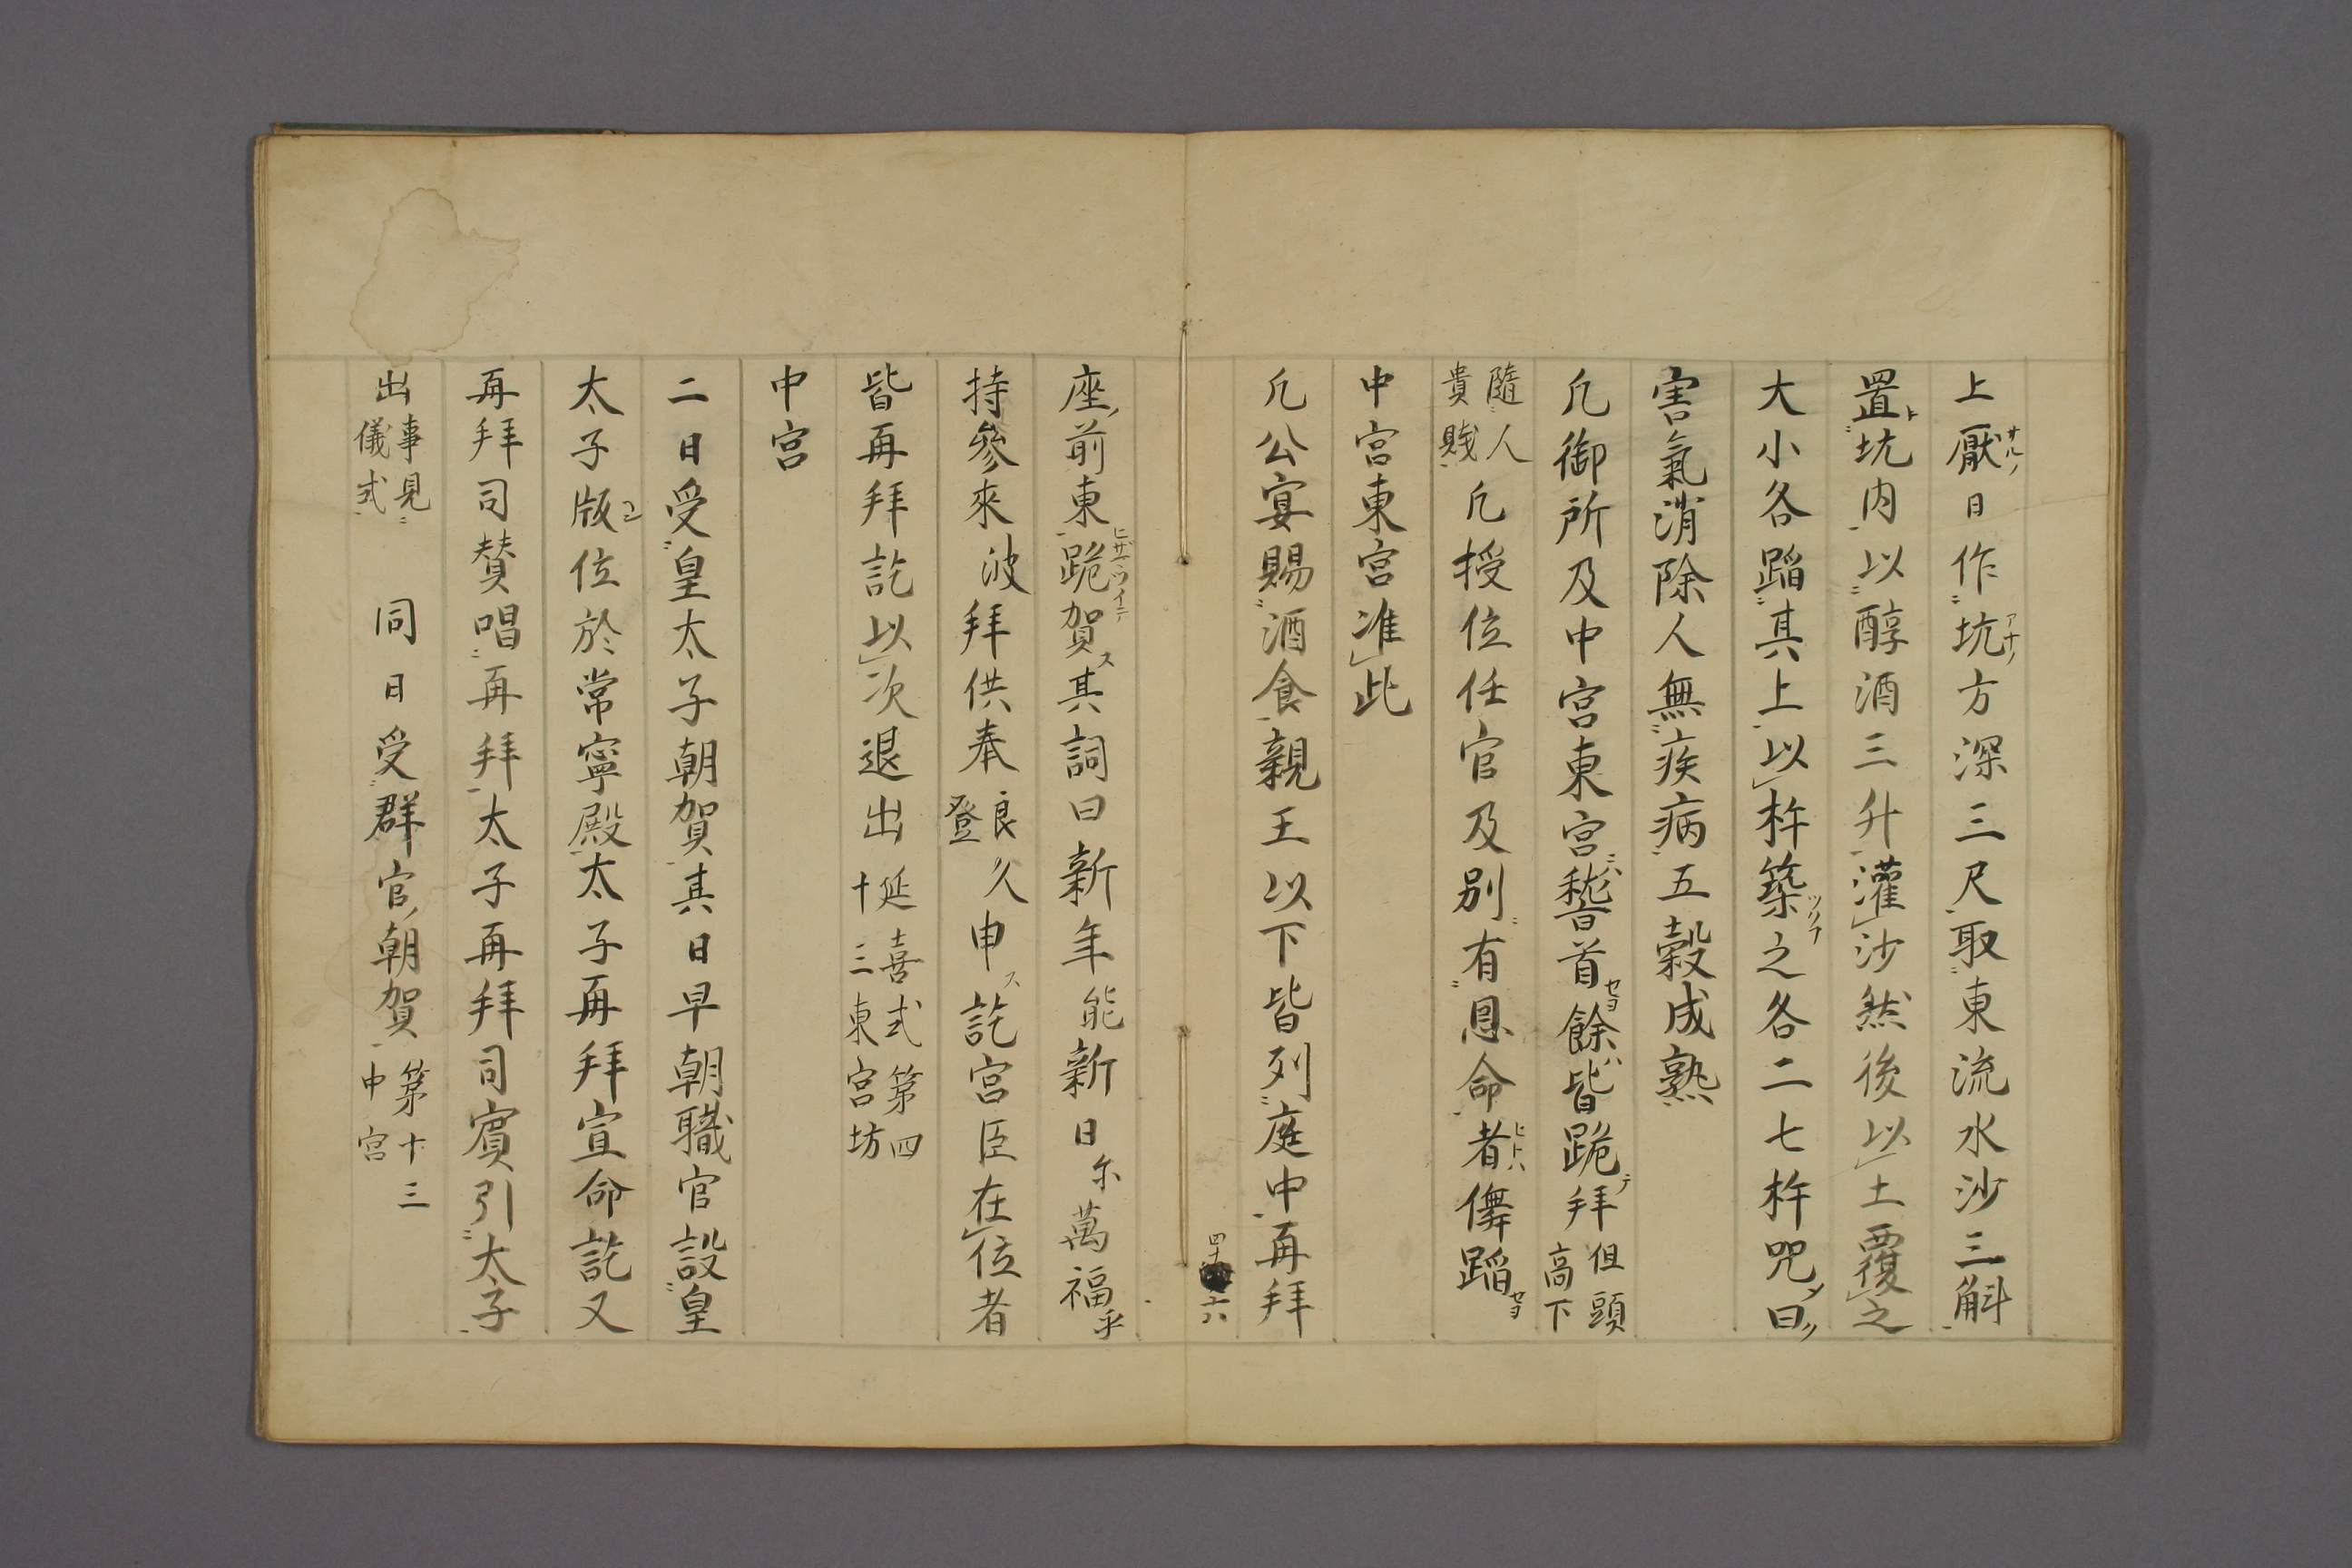 上厭サルノ日作ニ坑アナノ方深三尺取ニ東流水沙三斛
置ト坑内以ニ醇酒三升灌レ沙然後以レ土覆レ之
大小各蹈ニ其上以レ杵築ツクフ之各二七杵咒曰
害氣消除人無疾病五穀成熟
凡御所及中宮東宮ニハ稽首セヨ餘ハ皆跪テ拜但頭高下
隨人貴賤凡授位任官及別有ニ恩命者ヒトハ儛蹈セヨ
中宮東宮准レ此
凡公宴賜ニ酒食親王以下皆列ニ庭中再拜
四十六
座ノ前東跪ヒサマツイテ賀ス其詞曰新年能新日尓萬福乎
持參來波拜供奉良久登申ス訖宮臣在レ位者
皆再拜訖以レ次退出延喜式第四十三東宮坊
中宮
二日受ニ皇太子朝賀其日早朝職官設ニ皇
太子版コ位於常寧殿太子再拜宣命訖又
再拜司賛唱ニ再拜太子再拜司賓引ニ太子
出事見ニ儀式 同日受ニ群官ノ朝賀第十三中宮